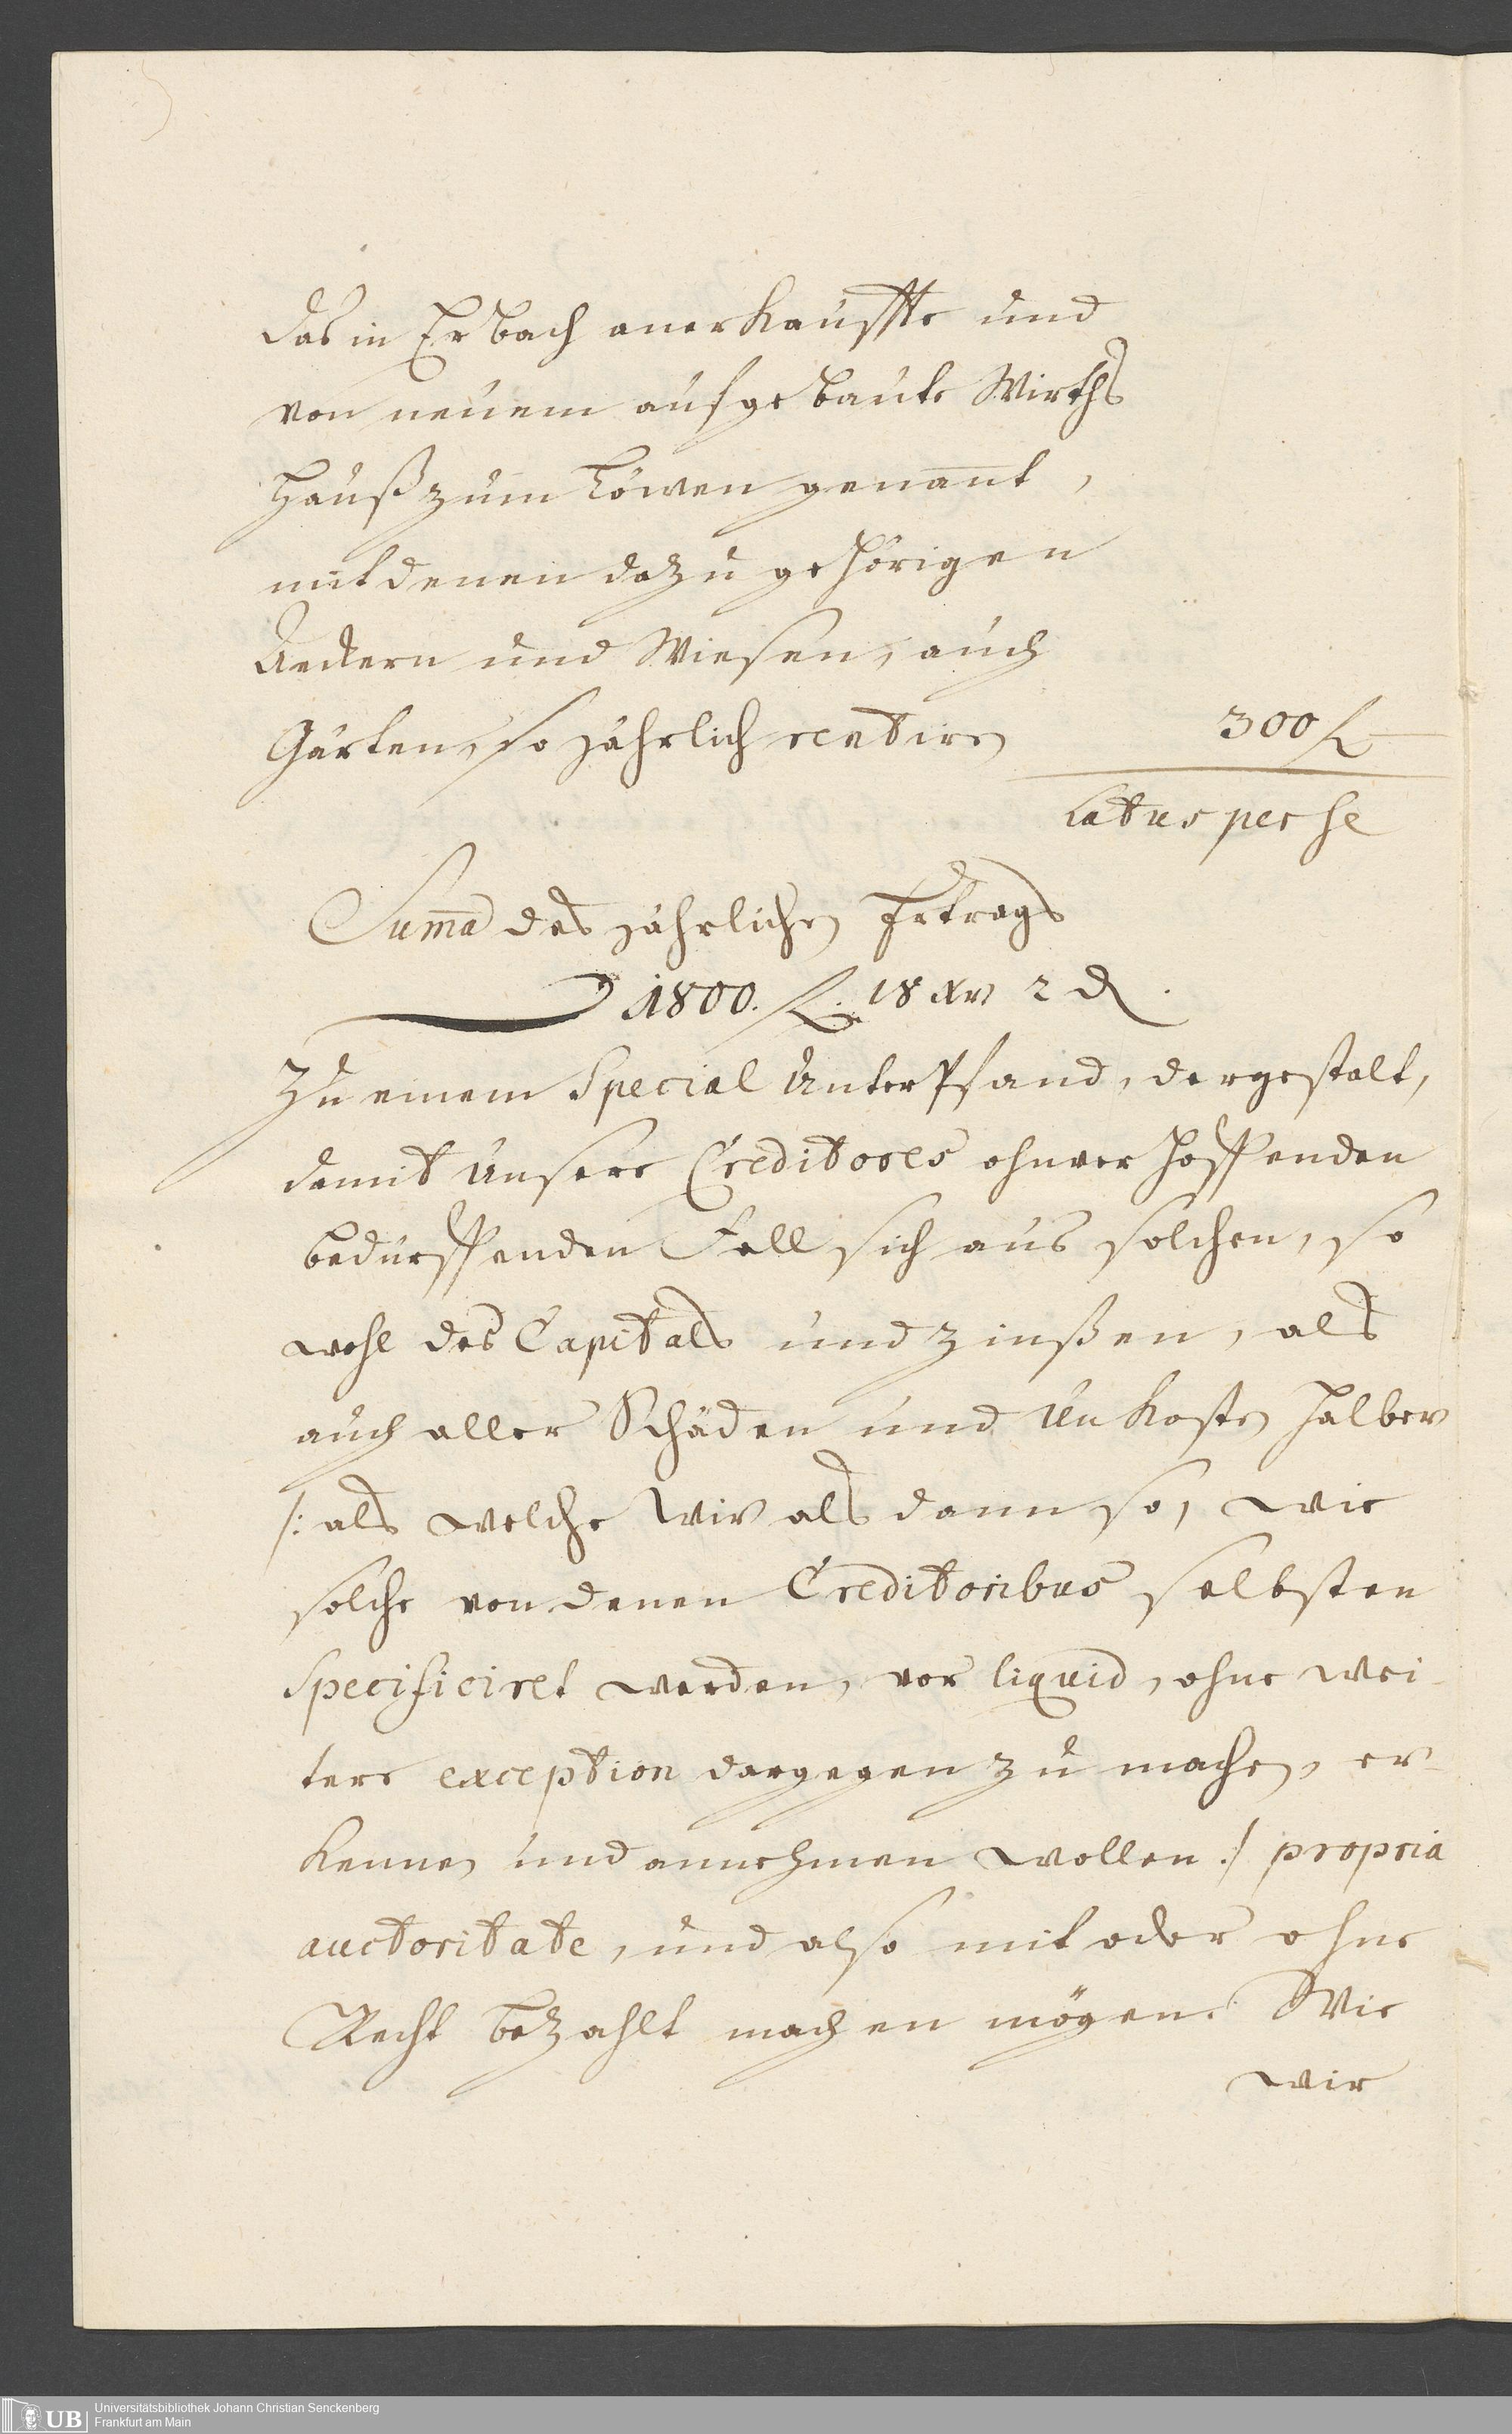 das in Erbach anerkauffte und
von neuem aufgebaute Wirths
Hauß zum Löwen genannt,
mit denen dazu gehörigen
Aeckern und Wiesen, auch
Gärten, so jährlich rentiren
300 fl
Latus per se
Summa des jährlichen Ertrags
1800. fl. 18 xr 2 d.
Zu einem Special UnterPfand, dergestalt,
damit Unsere Creditores ohnverhoffenden
bedürffenden Fall sich aus solchen, so
wohl des Capitals und Zinßen, als
auch aller Schäden und Unkosten halber
/: als welche Wir als dann so, wie
solche von denen Creditoribus selbsten
specificiret werden, vor liquid, ohne wei-
tere exception dargegen zu machen, er-
kennen und annehmen wollen :/ propria
auctoritate, und also mit oder ohne
Recht bezahlt machen mögen. Wie
wir
Universitätsbibliothek Johann Christian Senckenberg
Frankfurt am Main
UB